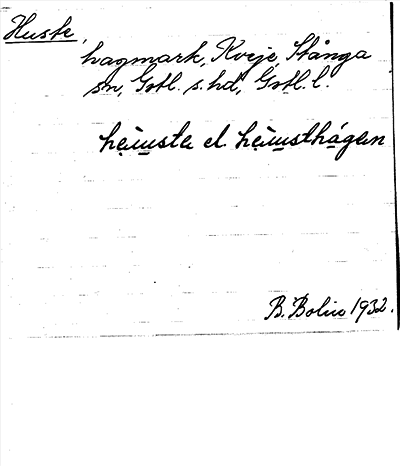 Huste,
hagmark, Kveje, Stånga
sn, Gotl. s. hd, Gotl. l.
hæ̀u̯sta el. hæ̀u̯sthágen
B. Bolin 1932.